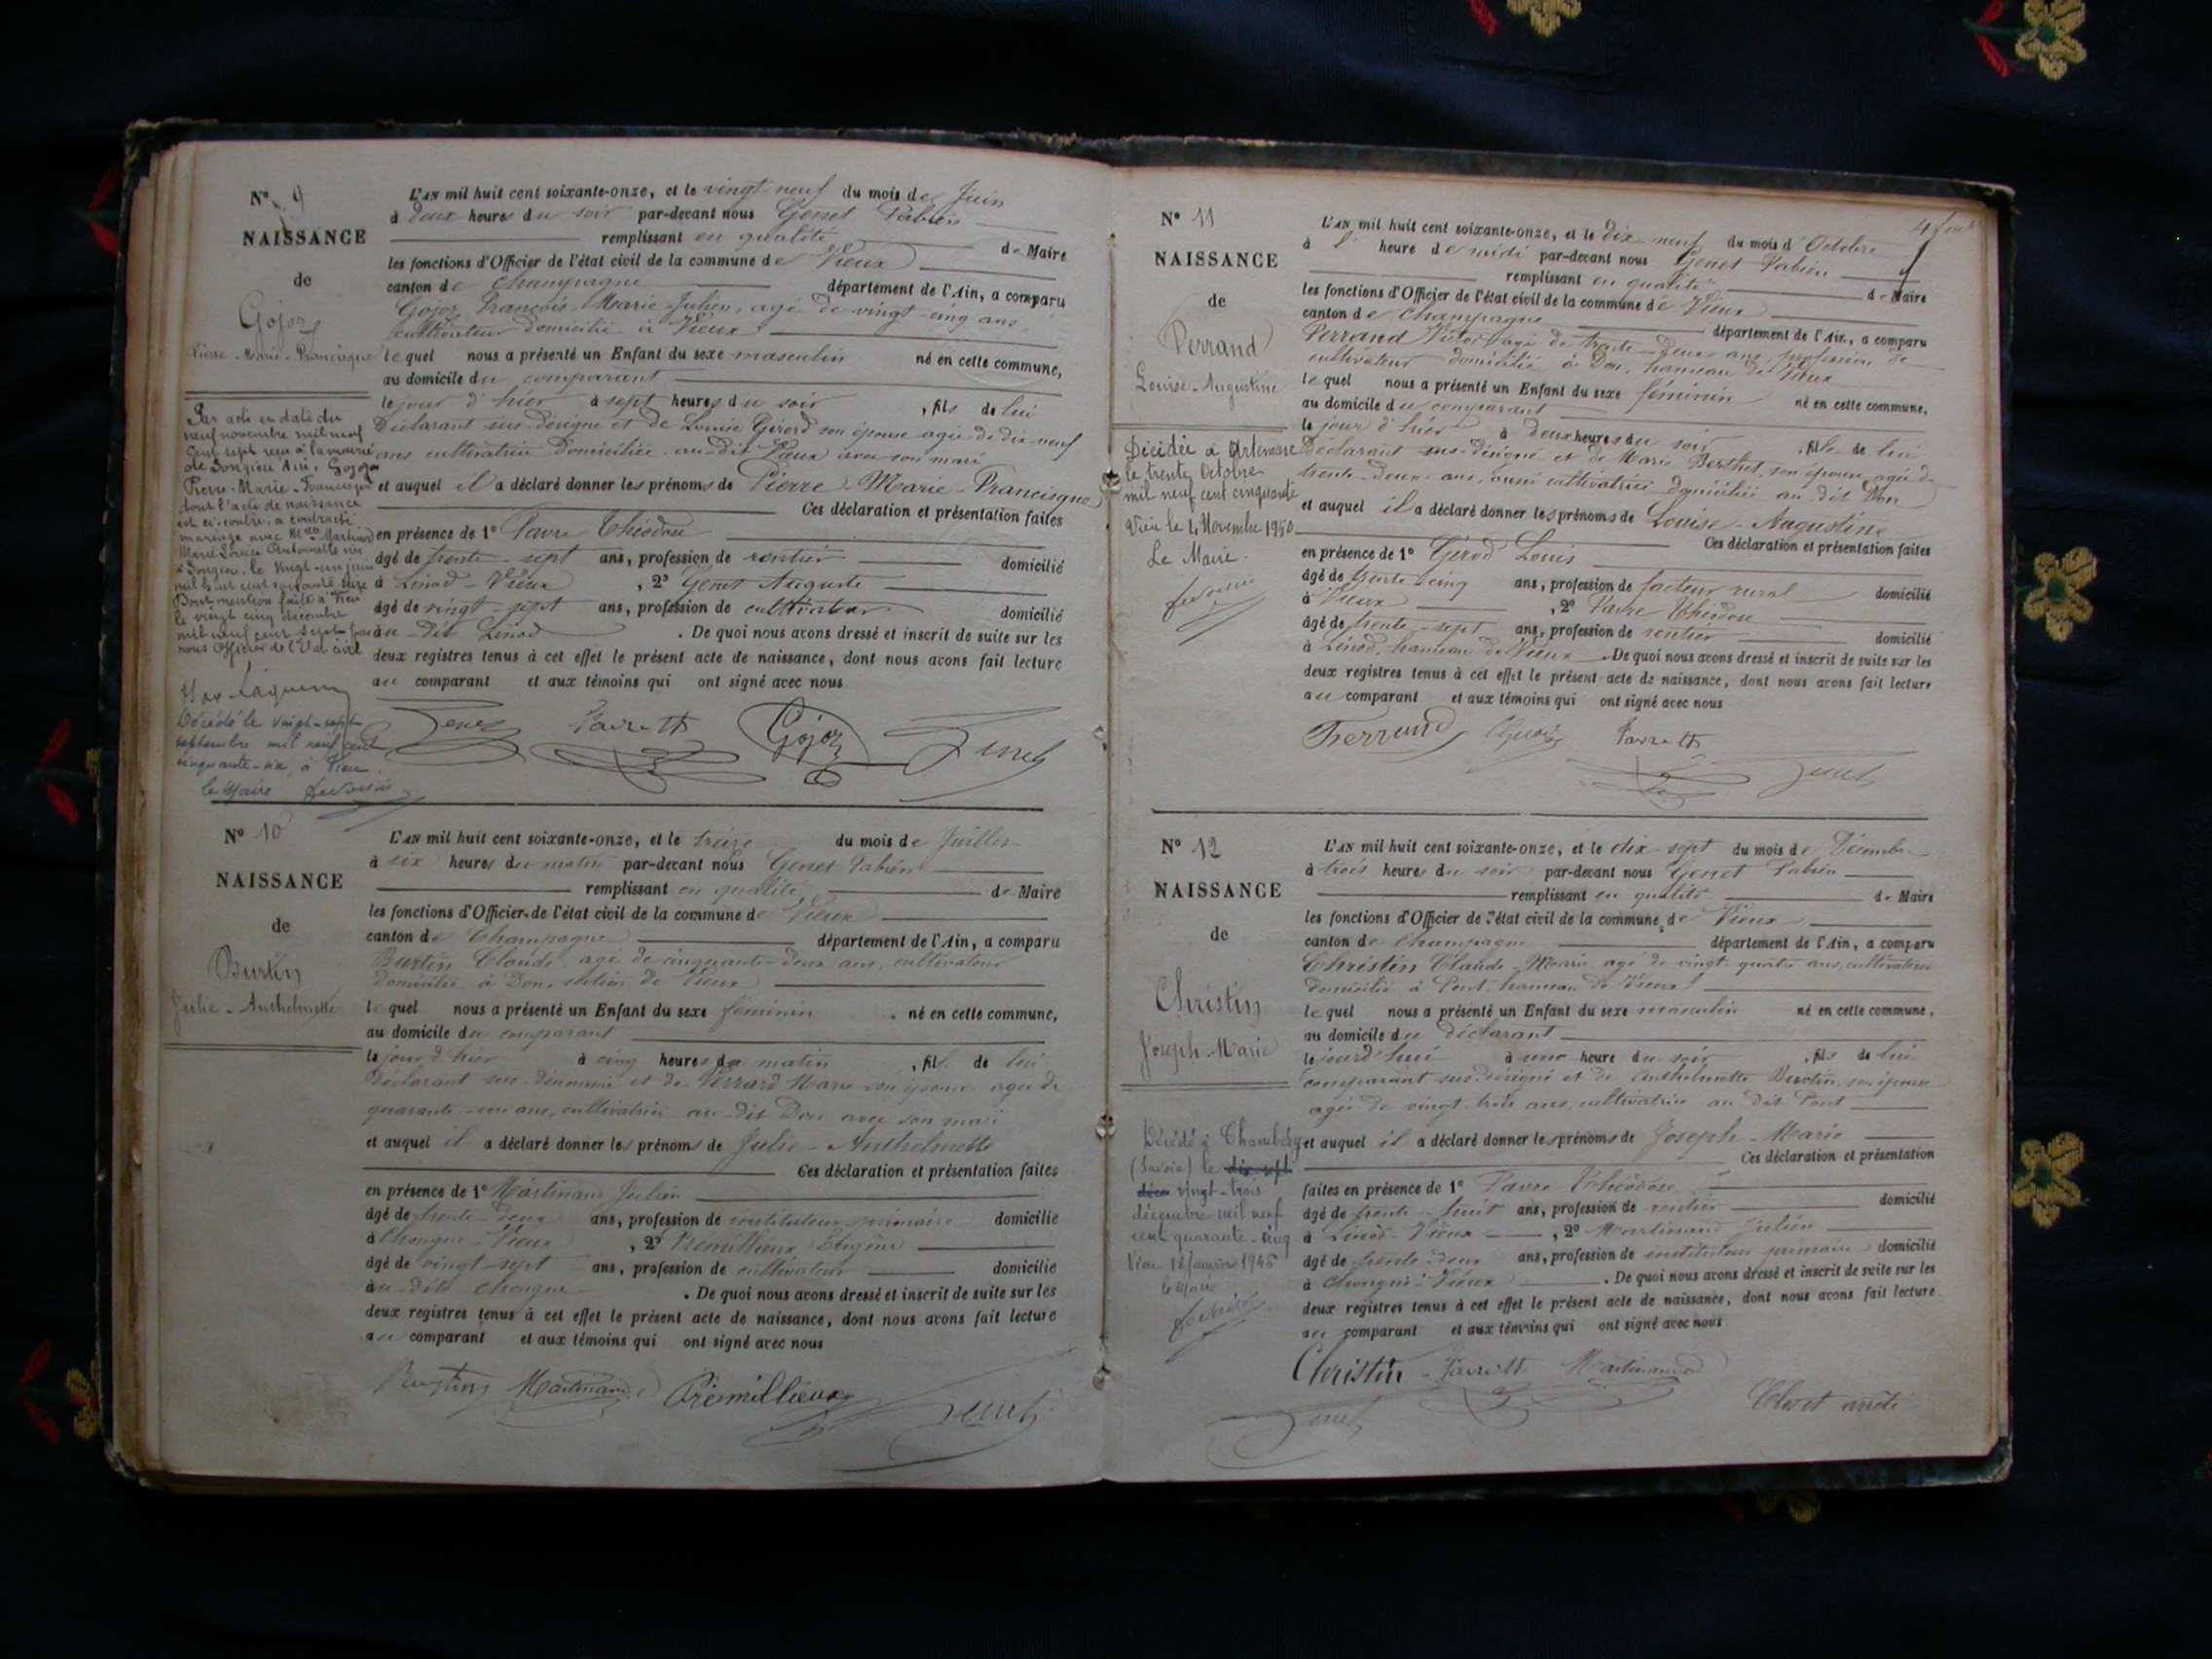 N° 9
NAISSANCE
de
Gojoz
Pierre-Marie-Francisque
Par acte en date du
neuf novembre mil neuf
cent sept reçu à la mairie
de Songieu Ain, Gojoz
Pierre-Marie-Francisque
dont l'acte de naissance
est ci-contre, a contracté
mariage avec Martinand
Marie Louise Antoinette née
à Songieu, le vingt-un juin
mil huit cent soixante seize
Dont mention faite à Vieu
le vingt cinq décembre
mil neuf cent sept par
nous Officier de l'Etat civil
Décédé le vingt-sept
septembre mil neuf cent
cinquante-six, à Vieu.
le Maire
L'AN mil huit cent soixante-onze, et le vingt-neuf du mois de Juin
à deux heures du soir par-devant nous Genet Fabien
remplissant en qualité de Maire
les fonctions d'Officier de l'état civil de la commune de Vieux
canton de Champagne département de l'Ain, a comparu
Gojoz François-Marie-Julien, agé de vingt-cinq ans,
cultivateur domicilié à Vieux
lequel nous a présenté un Enfant du sexe masculin né en cette commune,
au domicile du comparant
le jour d'hier à sept heures du soir, fils de lui
Déclarant sus-désigné et de Louise Gerod son épouse agée de dix-neuf
ans cultivatrice domiciliée au-dit Vieux avec son mari
et auquel il a déclaré donner les prénoms de Pierre-Marie-Francisque
Ces déclaration et présentation faites
en présence de 1° Favre Théodose
âgé de trente-sept ans, profession de rentier domicilié
à Linod-Vieux, 2° Genet Auguste
âgé de vingt-sept ans, profession de cultivateur domicilié
au-dit Linod. De quoi nous avons dressé et inscrit de suite sur les
deux registres tenus à cet effet le présent acte de naissance, dont nous avons fait lecture
au comparant et aux témoins qui ont signé avec nous
Genet Favre Th Gojoz Genet
N° 10
NAISSANCE
de
Burtin
Julie-Anthelmette
L'AN mil huit cent soixante-onze, et le treize du mois de Juillet
à six heures du matin par-devant nous Genet Fabien
remplissant en qualité de Maire
les fonctions d'Officier de l'état civil de la commune de Vieux
canton de Champagne département de l'Ain, a comparu
Burtin Claude agé de cinquante-deux ans, cultivateur
domicilié à Don, section de Vieux
lequel nous a présenté un Enfant du sexe féminin né en cette commune,
au domicile du comparant
le jour d'hier à cinq heures du matin, fille de lui
Déclarant sus-dénommé et de Perrard Marie son épouse agée de
quarante-un ans, cultivatrice au-dit Don avec son mari
et auquel il a déclaré donner les prénoms de Julie-Anthelmette
Ces déclaration et présentation faites
en présence de 1° Martinand Julien
âgé de trente-deux ans, profession de instituteur primaire domicilié
à Chongne-Vieux, 2° Prémillieux Eugène
âgé de vingt-sept ans, profession de cultivateur domicilié
au-dit Chongne. De quoi nous avons dressé et inscrit de suite sur les
deux registres tenus à cet effet le présent acte de naissance, dont nous avons fait lecture
au comparant et aux témoins qui ont signé avec nous
Burtin Martinand Prémillieux Genet
N° 11
NAISSANCE
de
Perrand
Louise-Augustine
Décédée à Artemare
le trente Octobre
mil neuf cent cinquante
Vieu le 4 Novembre 1950
Le Maire
L'AN mil huit cent soixante-onze, et le dix-neuf du mois d'Octobre
à l' heure de midi par-devant nous Genet Fabien
remplissant en qualité de Maire
les fonctions d'Officier de l'état civil de la commune de Vieux
canton de Champagne département de l'Ain, a comparu
Perrand Victor agé de trente-deux ans, profession de
cultivateur domicilié à Don, hameau de Vieux
lequel nous a présenté un Enfant du sexe féminin né en cette commune,
au domicile du comparant
le jour d'hier à deux heures du soir, fille de lui
Déclarant sus-désigné et de Marie Berthet, son épouse agée de
trente-deux ans, aussi cultivatrice domiciliée au-dit Don
et auquel il a déclaré donner les prénoms de Louise-Augustine
Ces déclaration et présentation faites
en présence de 1° Gerod Louis
âgé de trente-cinq ans, profession de facteur rural domicilié
à Vieux, 2° Favre Théodose
âgé de trente-sept ans, profession de rentier domicilié
à Linod, hameau de Vieux. De quoi nous avons dressé et inscrit de suite sur les
deux registres tenus à cet effet le présent acte de naissance, dont nous avons fait lecture
au comparant et aux témoins qui ont signé avec nous
Perrand Gerod Favre Th Genet
N° 12
NAISSANCE
de
Christin
Joseph-Marie
Décédé à Chambéry
(Savoie) le dix-sept
déce vingt-trois
décembre mil neuf
cent quarante-cinq
Vieu 12 Janvier 1946
le Maire
L'AN mil huit cent soixante-onze, et le dix-sept du mois de Décembre
à trois heures du soir par-devant nous Genet Fabien
remplissant en qualité de Maire
les fonctions d'Officier de l'état civil de la commune de Vieux
canton de Champagne département de l'Ain, a comparu
Christin Claude-Marie agé de vingt-quatre ans, cultivateur
domicilié à Pont, hameau de Vieux
lequel nous a présenté un Enfant du sexe masculin né en cette commune,
au domicile du déclarant
le jourd'hui à une heure du soir, fils de lui
comparant sus-désigné et de Anthelmette Burtin son épouse
agée de vingt-trois ans, cultivatrice au-dit Pont
et auquel il a déclaré donner les prénoms de Joseph-Marie
Ces déclaration et présentation
faites en présence de 1° Favre Théodose
âgé de trente-huit ans, profession de rentier domicilié
à Linod-Vieux, 2° Martinand Julien
âgé de trente-deux ans, profession de instituteur primaire domicilié
à Chongne-Vieux. De quoi nous avons dressé et inscrit de suite sur les
deux registres tenus à cet effet le présent acte de naissance, dont nous avons fait lecture
au comparant et aux témoins qui ont signé avec nous
Christin Favre Th Martinand
Genet
Clos et arrêté